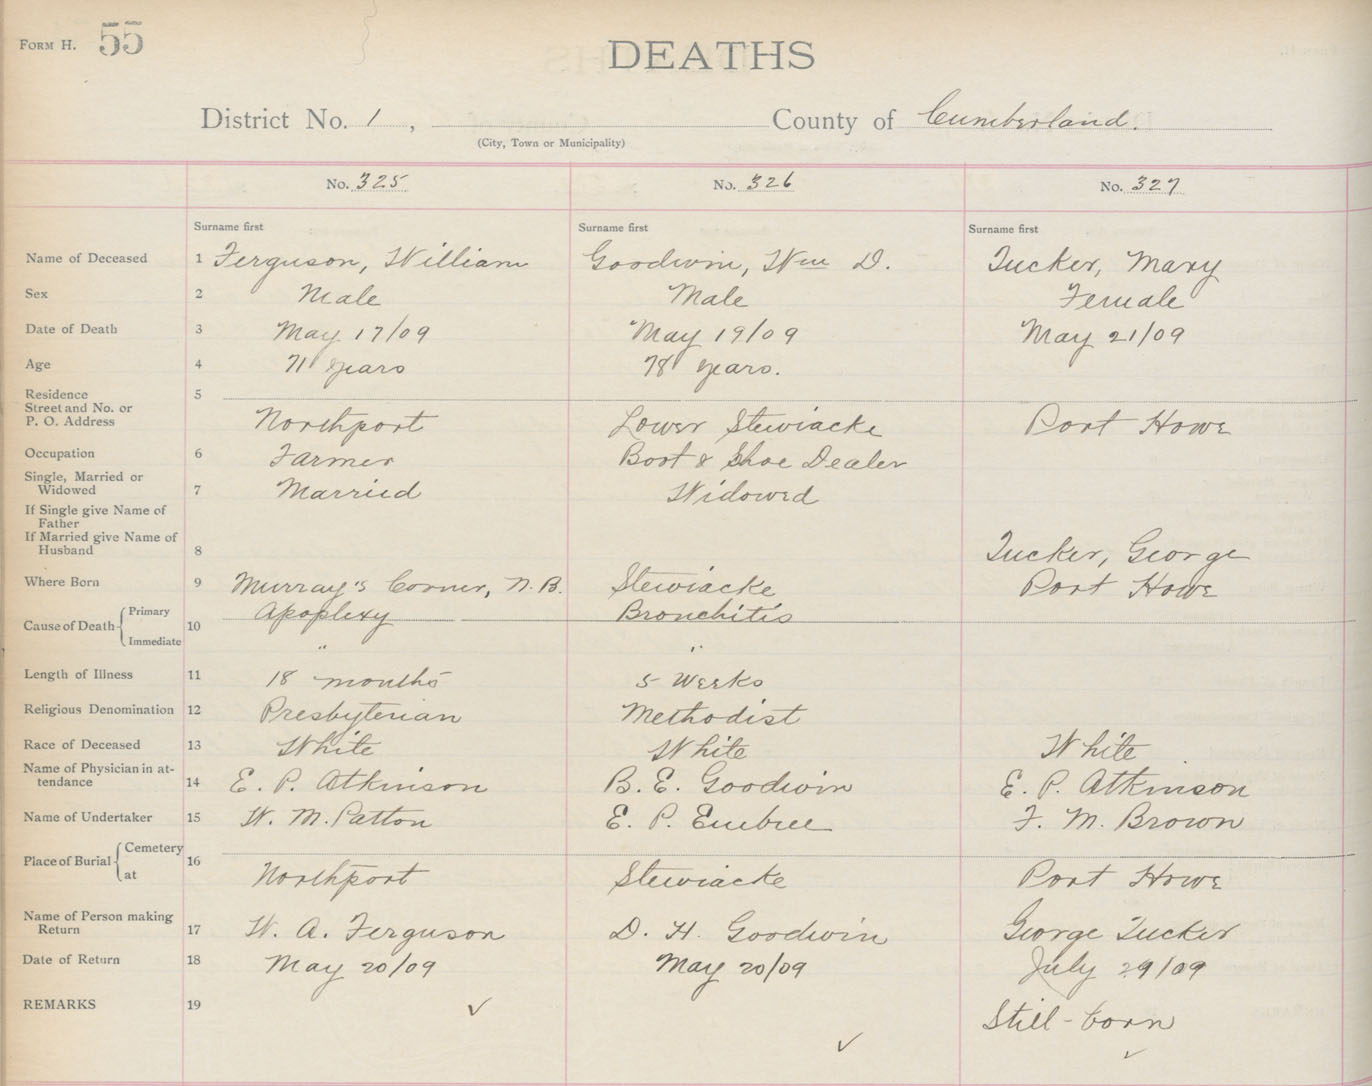 FORM H. 55
DEATHS
District No. 1 , County of Cumberland.
(City, Town or Municipality)
No. 325 No. 326 No. 327
Surname first Surname first Surname first
Name of Deceased 1 Ferguson, William Goodwin, Wm D. Tucker, Mary
Sex 2 Male Male Female
Date of Death 3 May 17/09 May 19/09 May 21/09
Age 4 71 years 78 years.
Residence 5
Street and No. or
P. O. Address Northport Lower Stewiacke Port Howe
Occupation 6 Farmer Boot & Shoe Dealer
Single, Married or
Widowed 7 Married Widowed
If Single give Name of
Father
If Married give Name of
Husband 8 Tucker, George
Where Born 9 Murray's Corner, N.B. Stewiacke Port Howe
Cause of Death Primary 10 Apoplexy Bronchitis
Immediate " "
Length of Illness 11 18 months 5 Weeks
Religious Denomination 12 Presbyterian Methodist
Race of Deceased 13 White White White
Name of Physician in at-
tendance 14 E. P. Atkinson B. E. Goodwin E. P. Atkinson
Name of Undertaker 15 W. M. Patton E. P. Embree F. M. Brown
Place of Burial Cemetery 16
at Northport Stewiacke Port Howe
Name of Person making
Return 17 W. A. Ferguson D. H. Goodwin George Tucker
Date of Return 18 May 20/09 May 20/09 July 29/09
REMARKS 19 ✓ ✓ Still-born ✓